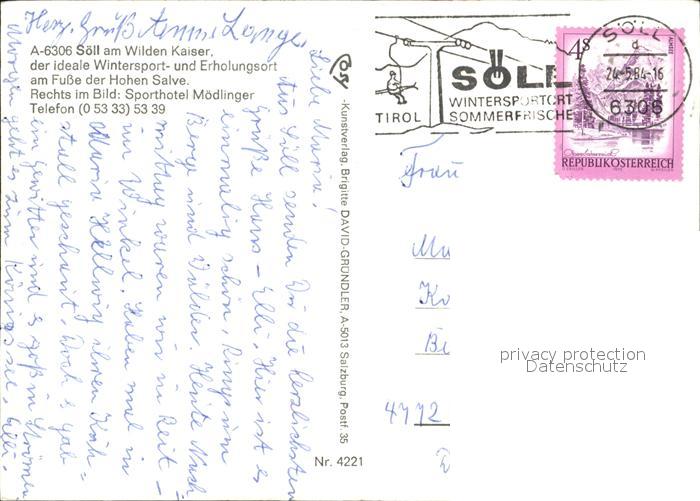 Herz. Gruß Anni Lange.
A-6306 Söll am Wilden Kaiser,
der ideale Wintersport- und Erholungsort
am Fuße der Hohen Salve.
Rechts im Bild: Sporthotel Mödlinger
Telefon (0 53 33) 53 39
Liebe Maria!
Aus Söll senden Dir die herzlichsten
Grüße Hans - Elli. Hier ist es
einmalig schön, Rings um
Berge und Wälder. Heute Nach=
mittag waren wir in Reit -
im Winkel. Haben mal in
Maria Hellwig ihren Kuh=
stall geschaut. Doch es gab
ein Gewitter und es goß in Strömen
Morgen geht es zum Königssee, Elli.
-Kunstverlag, Brigitte DAVID-GRÜNDLER, A-5013 Salzburg, Postf. 35
Nr. 4221
TIROL
SÖLL
WINTERSPORTORT
SOMMERFRISCHE
SÖLL
d
24.-5.84-16
6306
4 S
REPUBLIK ÖSTERREICH
Frau
Mu
Ko
Be
4772
privacy protection
Datenschutz